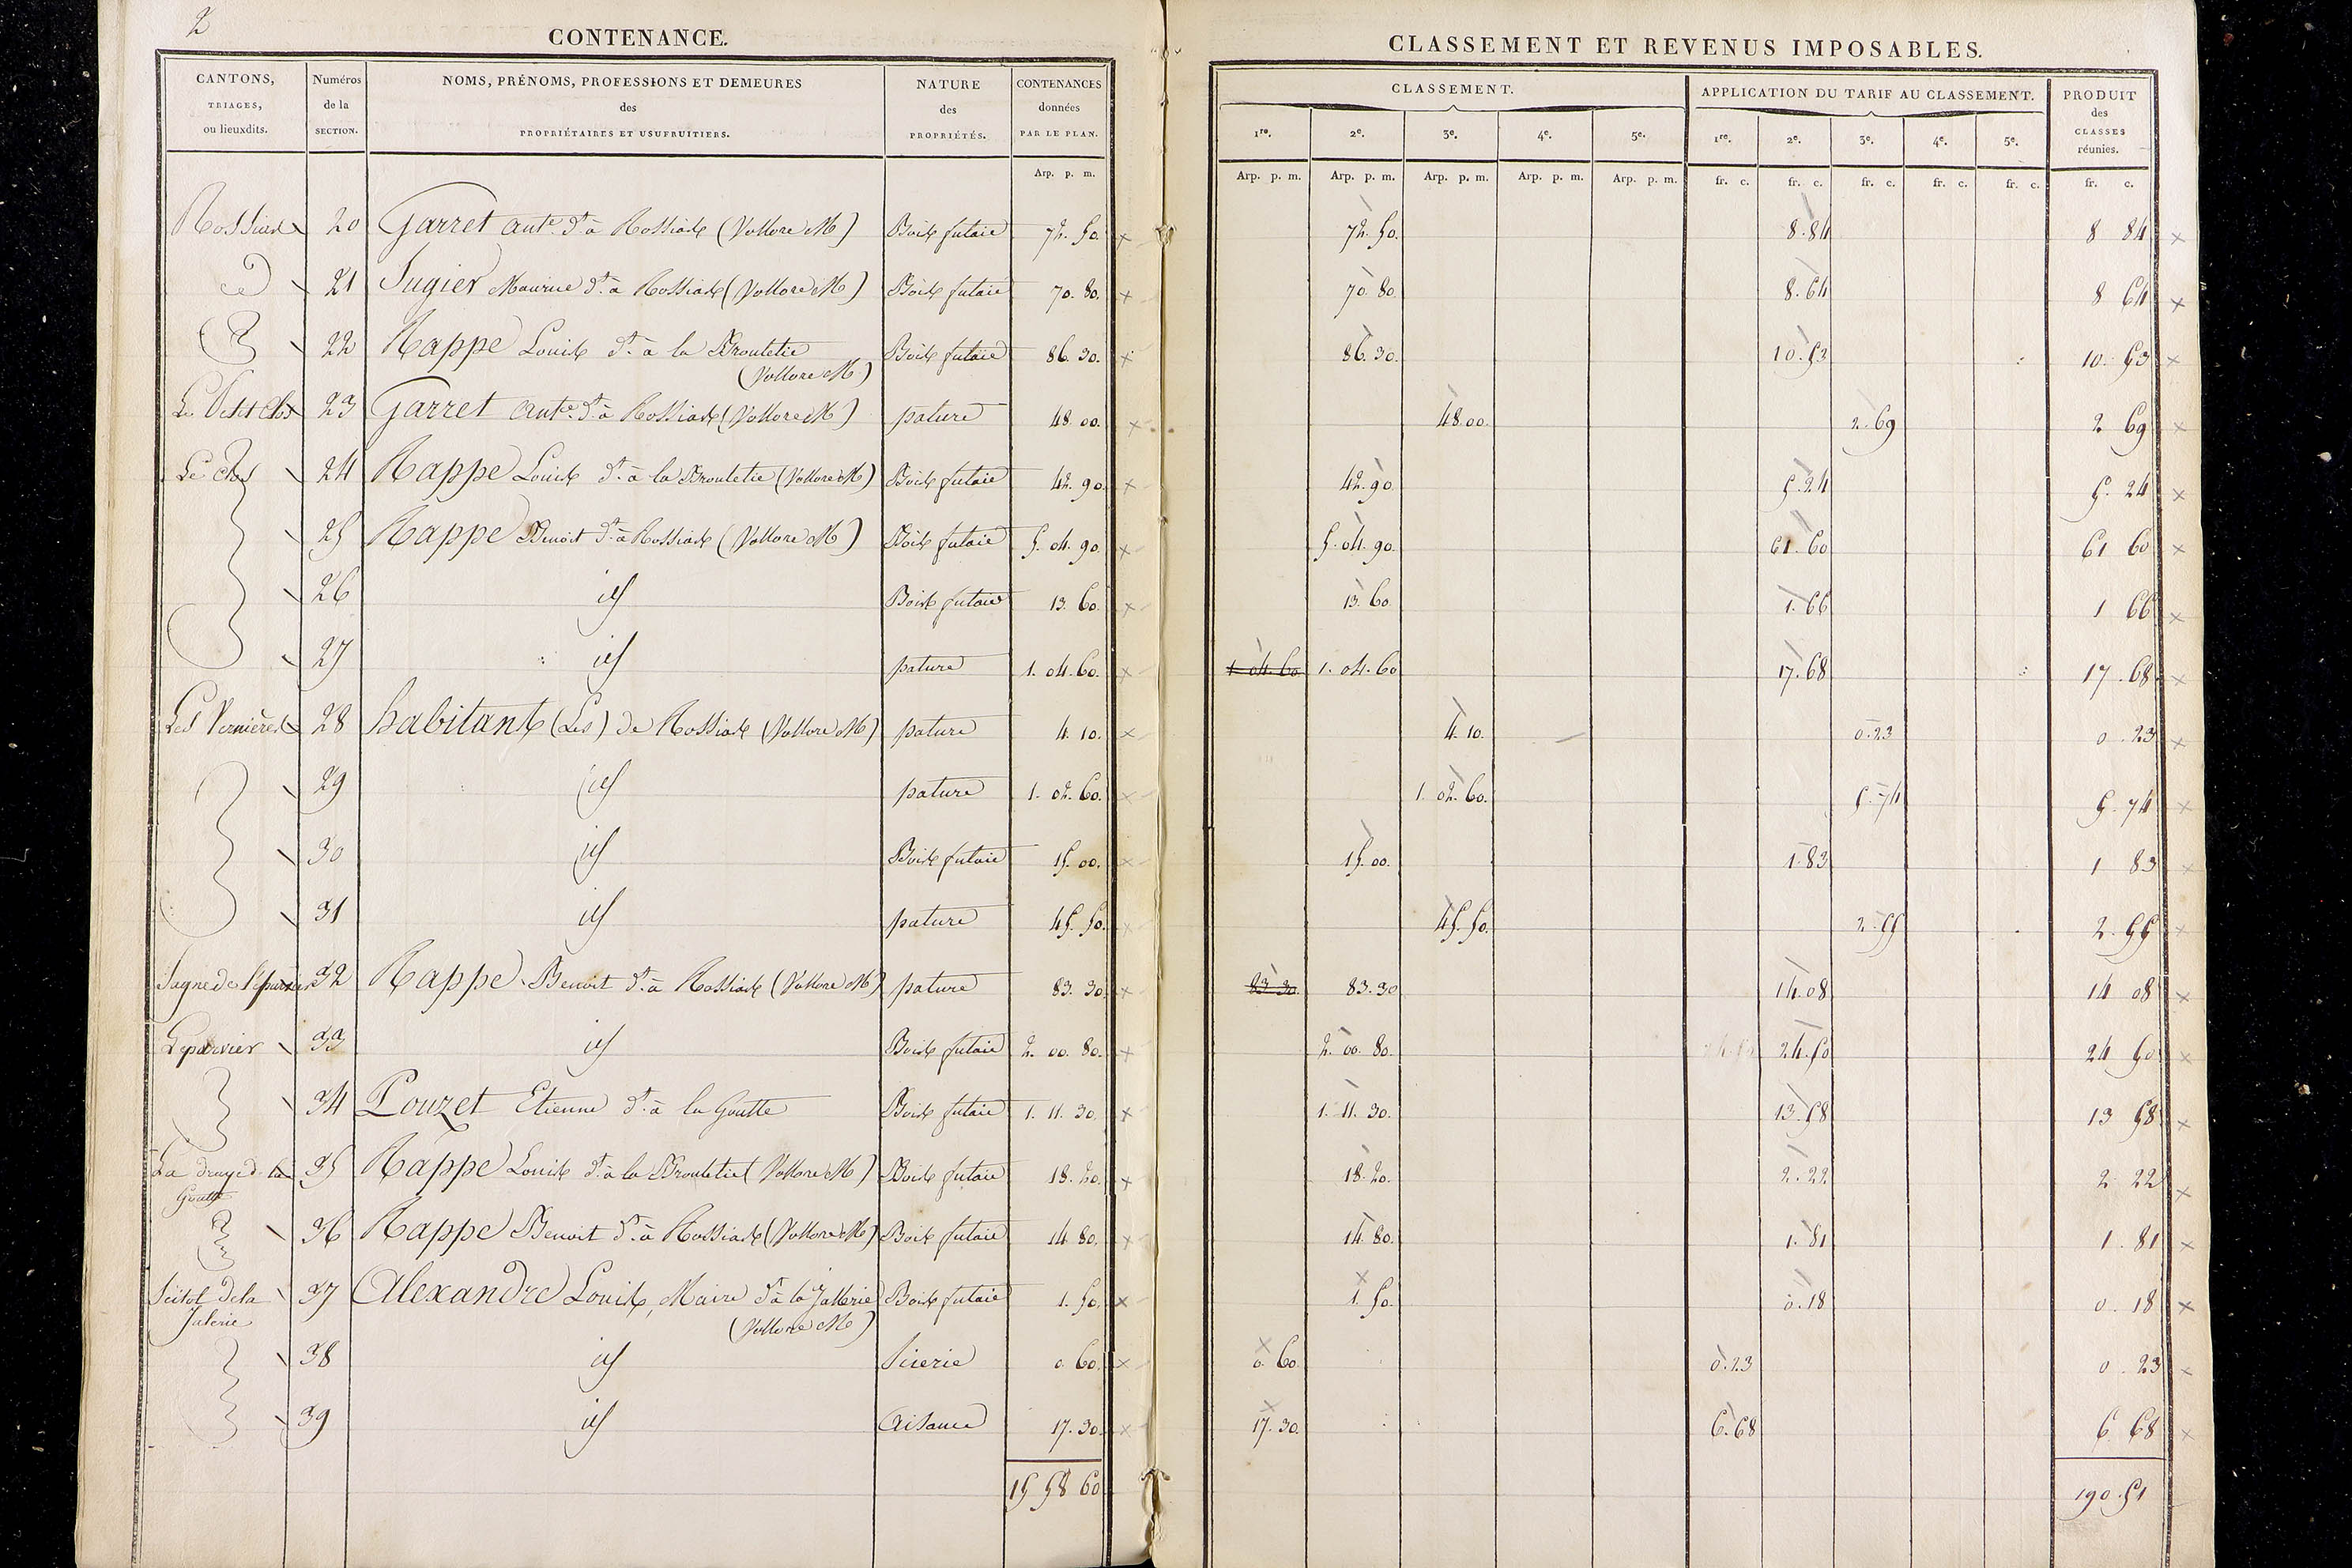 2
CONTENANCE.
CANTONS, TRIAGES, ou lieuxdits. | Numéros de la SECTION. | NOMS, PRÉNOMS, PROFESSIONS ET DEMEURES des PROPRIÉTAIRES ET USUFRUITIERS. | NATURE des PROPRIÉTÉS. | CONTENANCES données PAR LE PLAN.
Arp. p. m.
Rossias 20 Garret ant.e d.t à Rossias (Vollore M) Bois futaie 72. 50.
id 21 Sugier Maurice d.t à Rossias (Vollore M) Bois futaie 70. 80.
22 Rappe Louis d.t à la Brouletie Bois futaie 86. 30.
(Vollore M)
Le Petit Clos 23 Garret ant.e d.t à Rossias (Vollore M) pature 48. 00.
Le Clos 24 Rappe Louis d.t à la Brouletie (Vollore M) Bois futaie 42. 90.
25 Rappe Benoit d.t à Rossias (Vollore M) Bois futaie 5. 04. 90.
26 id Bois futaie 13. 60.
27 id pature 1. 04. 60.
Les Vernières 28 habitants (Les) de Rossias (Vollore M) pature 4. 10.
29 id pature 1. 02. 60.
30 id Bois futaie 15. 00.
31 id pature 45. 50.
Sagne de l'éparvier 32 Rappe Benoit d.t à Rossias (Vollore M) pature 83. 30.
Léparvier 33 id Bois futaie 2. 00. 80.
34 Pouzet Etienne d.t à la Goutte Bois futaie 1. 11. 30.
La de la 35 Rappe Louis d.t à la Brouletie (Vollore M) Bois futaie 18. 20.
Goutte
36 Rappe Benoit d.t à Rossias (Vollore M) Bois futaie 14. 80.
Scitol de la 37 Alexandre Louis, Maire d.t à la Jallerie Bois futaie 1. 50.
Jalerie (Vollore M)
38 id Scierie 0. 60.
39 id Aisance 17. 30.
15 58 60
CLASSEMENT ET REVENUS IMPOSABLES.
CLASSEMENT. | APPLICATION DU TARIF AU CLASSEMENT. | PRODUIT des CLASSES réunies.
1re. 2e. 3e. 4e. 5e. 1re. 2e. 3e. 4e. 5e.
Arp. p. m. Arp. p. m. Arp. p. m. Arp. p. m. Arp. p. m. fr. c. fr. c. fr. c. fr. c. fr. c. fr. c.
72. 50. 8. 84 8 84
70. 80. 8. 64 8 64
86. 30. 10. 53 10. 53
48. 00. 2. 69 2 69
42. 90. 5. 24 5. 24
5. 04. 90. 61. 60 61 60
13. 60 1. 66 1 66
1. 04. 60 1. 04. 60 17. 68 17. 68
4. 10. 0. 23 0. 23
1. 02. 60. 5. 74 5. 74
15. 00. 1. 83 1 83
45. 50. 2. 55 2. 55
83. 30. 83. 30 14. 08 14 08
2. 00. 80. 24. 50 24 50
1. 11. 30. 13. 58 13 58
18. 20. 2. 22 2 22
14. 80. 1. 81 1. 81
1. 50. 0. 18 0. 18
0. 60. 0. 23 0. 23
17. 30. 6. 68 6 68
190. 51